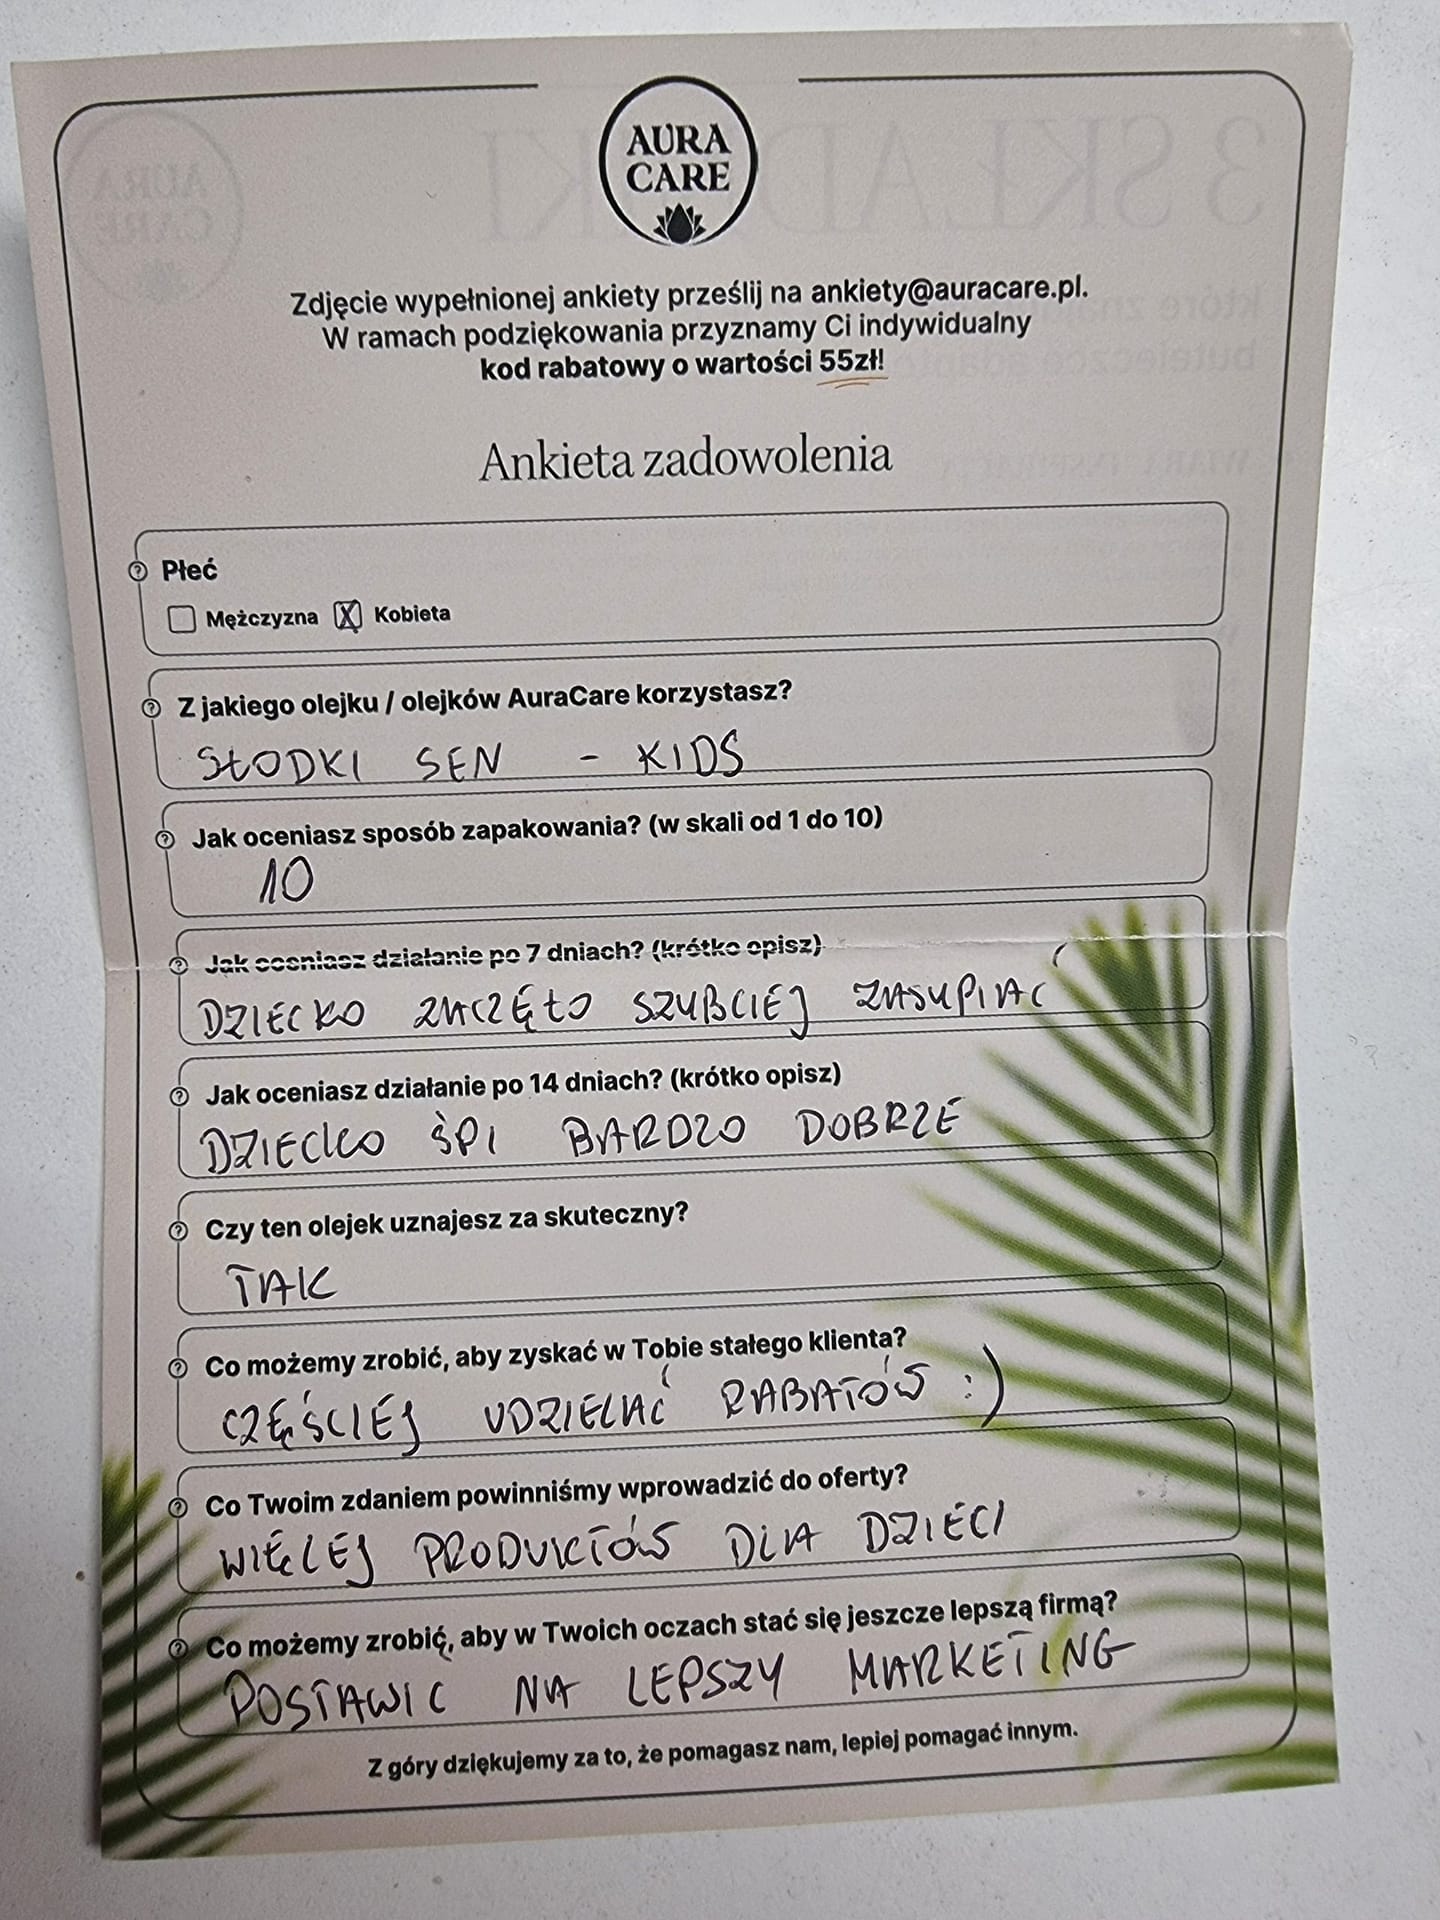 AURA
CARE
Zdjęcie wypełnionej ankiety prześlij na ankiety@auracare.pl.
W ramach podziękowania przyznamy Ci indywidualny
kod rabatowy o wartości 55zł!
Ankieta zadowolenia
Płeć
Mężczyzna X Kobieta
Z jakiego olejku / olejków AuraCare korzystasz?
SŁODKI SEN - KIDS
Jak oceniasz sposób zapakowania? (w skali od 1 do 10)
10
Jak oceniasz działanie po 7 dniach? (krótko opisz)
DZIECKO ZACZĘŁO SZYBCIEJ ZASYPIAĆ
Jak oceniasz działanie po 14 dniach? (krótko opisz)
DZIECKO ŚPI BARDZO DOBRZE
Czy ten olejek uznajesz za skuteczny?
TAK
Co możemy zrobić, aby zyskać w Tobie stałego klienta?
CZĘŚCIEJ UDZIELAĆ RABATÓW :)
Co Twoim zdaniem powinniśmy wprowadzić do oferty?
WIĘCEJ PRODUKTÓW DLA DZIECI
Co możemy zrobić, aby w Twoich oczach stać się jeszcze lepszą firmą?
POSTAWIĆ NA LEPSZY MARKETING
Z góry dziękujemy za to, że pomagasz nam, lepiej pomagać innym.